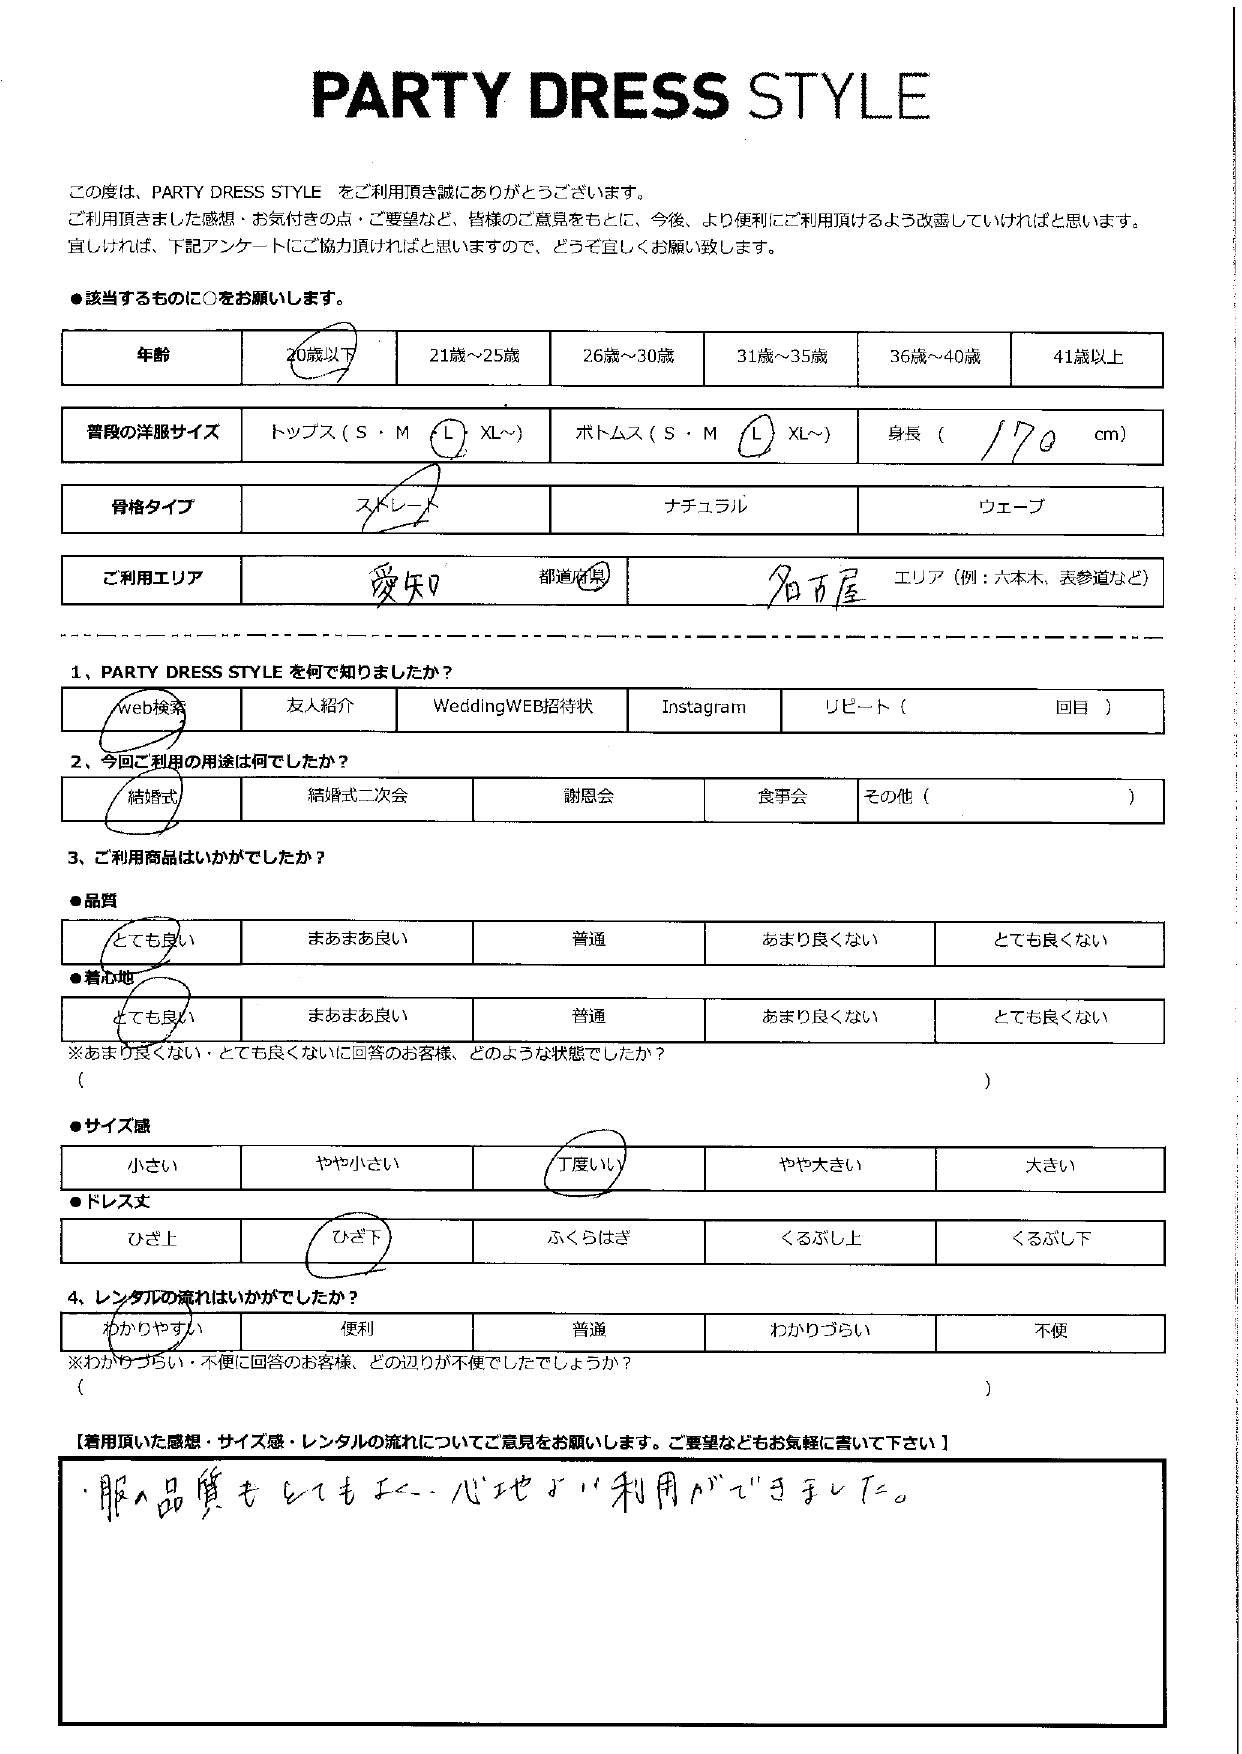 PARTY DRESS STYLE
この度は、PARTY DRESS STYLE をご利用頂き誠にありがとうございます。
ご利用頂きました感想・お気付きの点・ご要望など、皆様のご意見をもとに、今後、より便利にご利用頂けるよう改善していければと思います。
宜しければ、下記アンケートにご協力頂ければと思いますので、どうぞ宜しくお願い致します。
●該当するものに○をお願いします。
年齢 20歳以下 21歳～25歳 26歳～30歳 31歳～35歳 36歳～40歳 41歳以上
普段の洋服サイズ トップス ( S ・ M ・ L ・ XL～) ボトムス ( S ・ M ・ L ・ XL～) 身長 ( 170 cm)
骨格タイプ ストレート ナチュラル ウェーブ
ご利用エリア 愛知 都道府県 名古屋 エリア（例：六本木、表参道など）
1、PARTY DRESS STYLE を何で知りましたか？
web検索 友人紹介 WeddingWEB招待状 Instagram リピート（ 回目 ）
2、今回ご利用の用途は何でしたか？
結婚式 結婚式二次会 謝恩会 食事会 その他（ ）
3、ご利用商品はいかがでしたか？
●品質
とても良い まあまあ良い 普通 あまり良くない とても良くない
●着心地
とても良い まあまあ良い 普通 あまり良くない とても良くない
※あまり良くない・とても良くないに回答のお客様、どのような状態でしたか？
（ ）
●サイズ感
小さい やや小さい 丁度いい やや大きい 大きい
●ドレス丈
ひざ上 ひざ下 ふくらはぎ くるぶし上 くるぶし下
4、レンタルの流れはいかがでしたか？
わかりやすい 便利 普通 わかりづらい 不便
※わかりづらい・不便に回答のお客様、どの辺りが不便でしたでしょうか？
（ ）
【着用頂いた感想・サイズ感・レンタルの流れについてご意見をお願いします。ご要望などもお気軽に書いて下さい】
・服の品質もとてもよく、心地よい利用ができました。